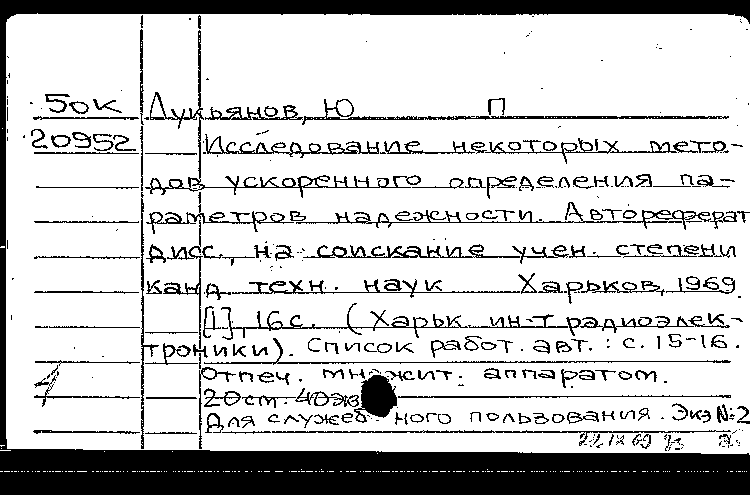 50к Лукьянов, Ю П
20952 Исследование некоторых мето-
дов ускоренного определения па-
раметров надежности. Автореферат
дисс., на соискание учен. степени
канд. техн. наук Харьков, 1969
[1], 16 с. (Харьк. ин-т радиоэлек-
троники). Список работ. авт.: с. 15-16.
Отпеч. множит. аппаратом.
20см. 40экз
Для служеб ного пользования. Экз №2
22 IX 69